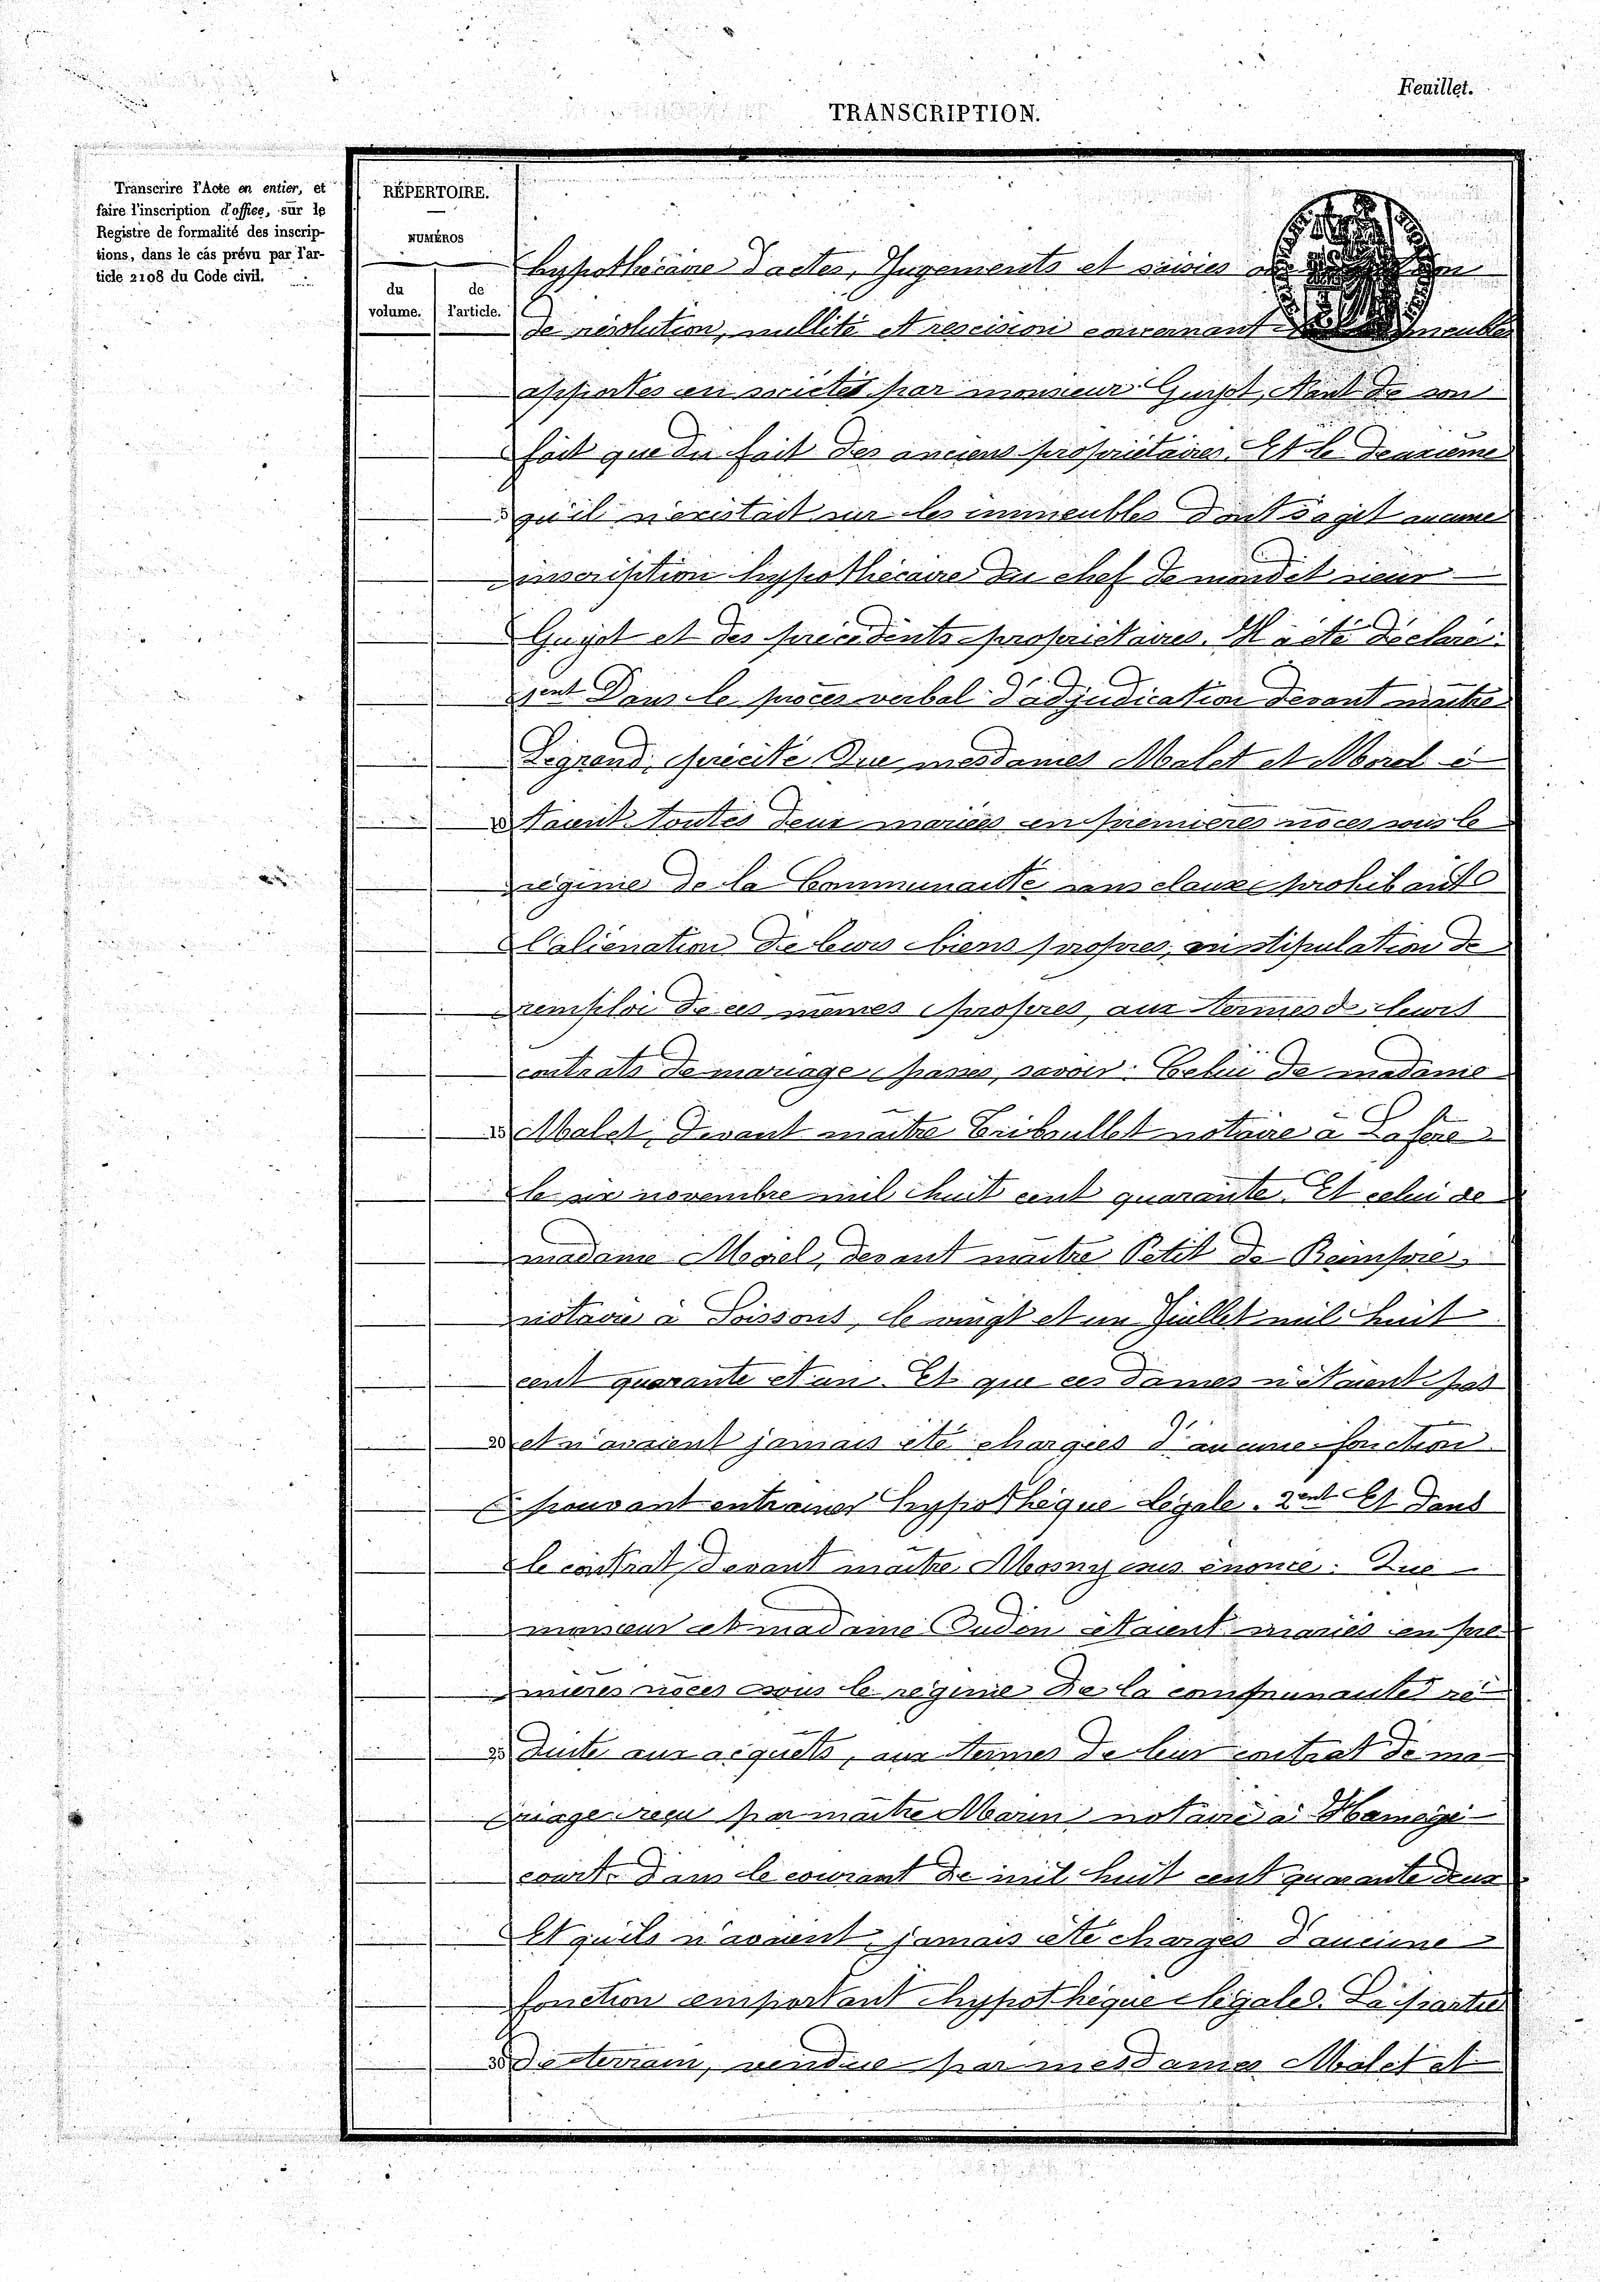 Feuillet.
TRANSCRIPTION.
Transcrire l'Acte en entier, et
faire l'inscription d'office, sur le
Registre de formalité des inscrip-
tions, dans le cas prévu par l'ar-
ticle 2108 du Code civil.
RÉPERTOIRE.
NUMÉROS
du
volume.
de
l'article.
hypothécaire d'actes, Jugements et saisies
de résolution, nullité et rescision concernant
apportés en société par monsieur Guyot, tant de son
fait que du fait des anciens propriétaires. Et le deuxième
5 qu'il n'existait sur les immeubles dont s'agit aucune
inscription hypothécaire du chef de mondit sieur
Guyot et des précédents propriétaires. Il a été déclaré:
1ent Dans le procès verbal d'adjudication devant maître
Legrand, précité Que mesdames Malet et Morel é
10 taient toutes deux mariées en premières noces sous le
régime de la Communauté sans clause prohibant
l'aliénation de leurs biens propres, ni stipulation de
remploi de ces mêmes propres, aux termes de leurs
contrats de mariage passés, savoir: Celui de madame
15 Malet, devant maître notaire à Lafère
le six novembre mil huit cent quarante. Et celui de
madame Morel, devant maître Petit de Reimpré,
notaire à Soissons, le vingt et un Juillet mil huit
cent quarante et un. Et que ces dames n'étaient pas
20 et n'avaient jamais été chargées d'aucune fonction
pouvant entrainer hypothèque légale. 2ent Et dans
le contrat devant maître Mosny sus énoncé: Que
monsieur et madame Oudin étaient mariés en pre
mières noces sous le régime de la communauté ré
25 duite aux acquêts, aux termes de leur contrat de ma
riage reçu par maître Marin notaire à Hamégi
court dans le courant de mil huit cent quarante deux
Et qu'ils n'avaient jamais été chargés d'aucune
fonction emportant hypothèque légale. La partie
30 de terrain, vendue par mesdames Malet et